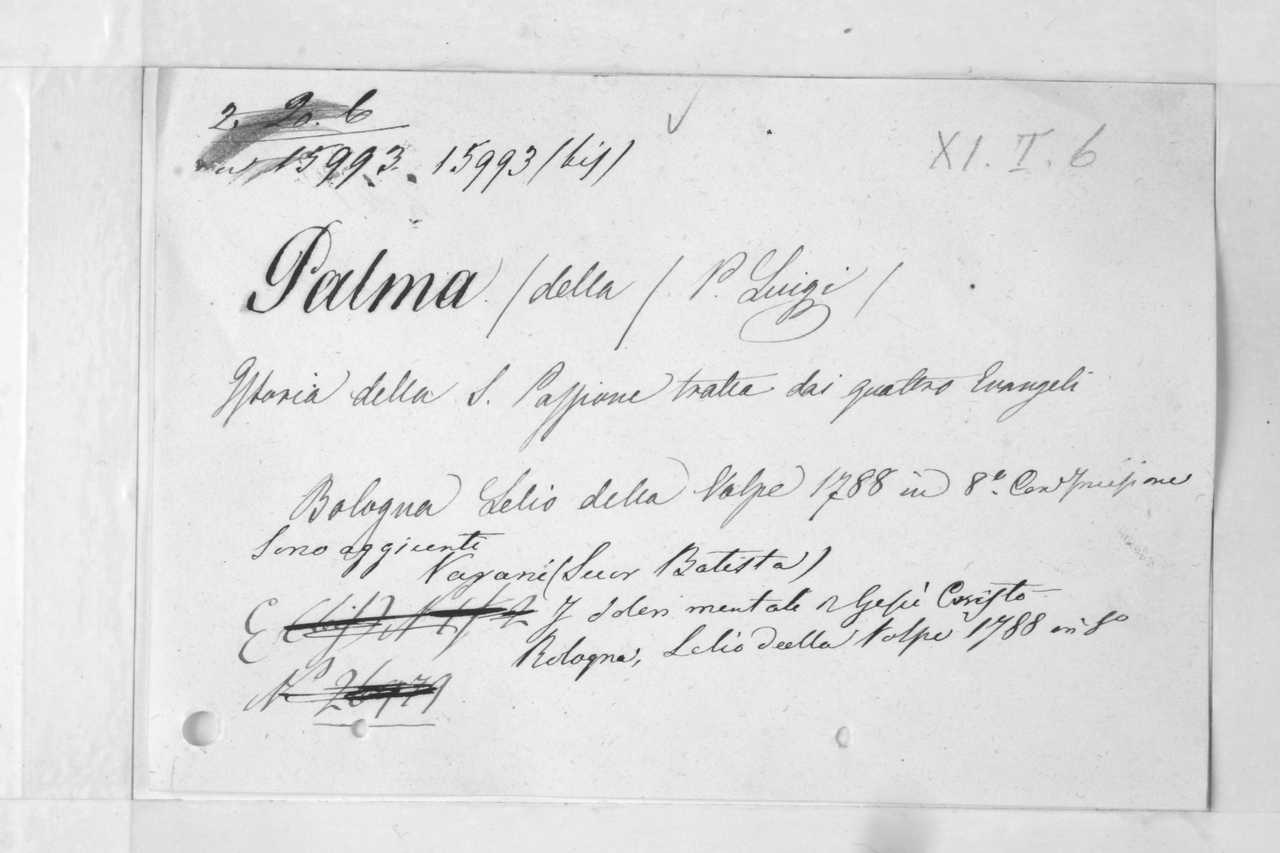 2. 2. 6
XI. I. 6
15993. 15993 (bis)
Palma / della / P. Luigi /
Istoria della S. Passione tratta dai quattro Evangeli
Bologna Lelio della Volpe 1788 in 8.º Con
Sono aggiunti
Varani (Suor Batista)
I dolori mentali di Gesù Cristo
Bologna, Lelio della Volpe 1788 in 8º
Nº 26979